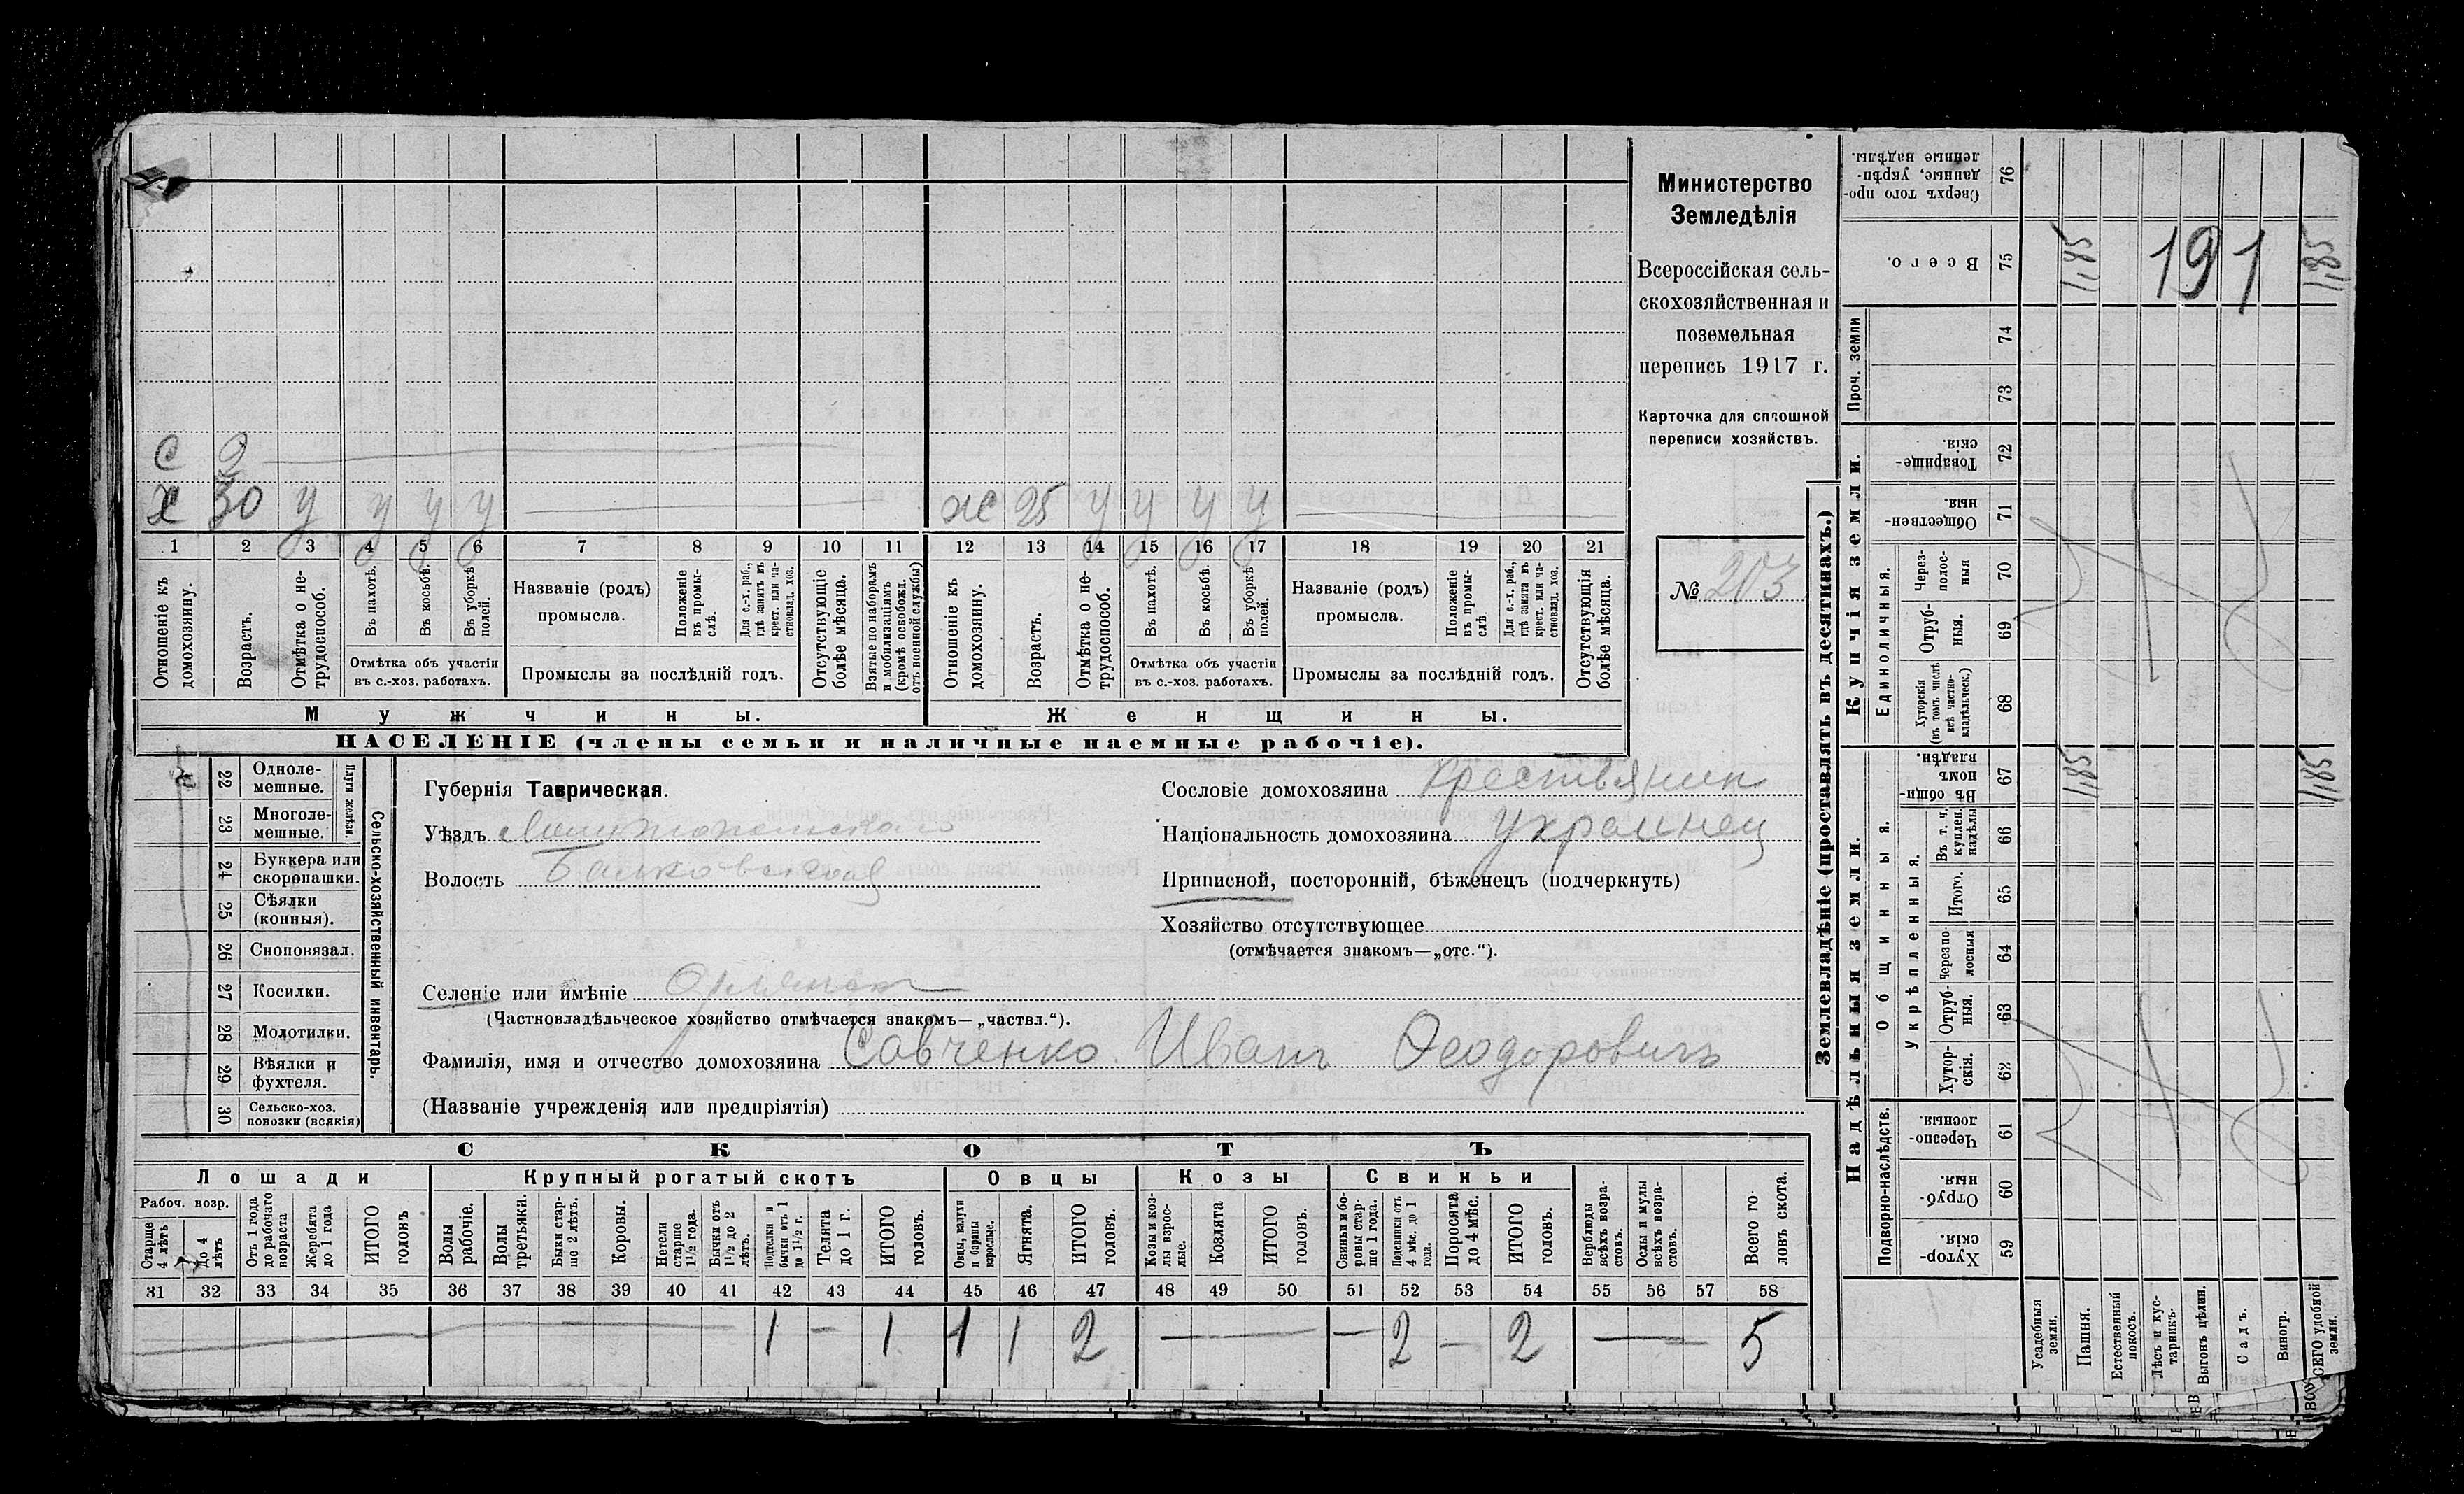 С 2
х 30 у у у у ж 25 у у у у
1 2 3 4 5 6 7 8 9 10 11 12 13 14 15 16 17 18 19 20 21
Отношеніе къ домохозяину.
Возрастъ.
Отмѣтка о не-трудоспособ.
Въ пахотѣ.
Въ косьбѣ.
Въ уборкѣ полей.
Отмѣтка объ участіи
въ с.-хоз. работахъ.
Названіе (родъ)
промысла.
Положеніе въ промы-слѣ.
Для с.-х. раб., гдѣ занятъ въ крест. или ча-стновлад. хоз.
Промыслы за послѣдній годъ.
Отсутствующіе болѣе мѣсяца.
Взятые по наборамъ и мобилизаціямъ (кромѣ освобожд. отъ военной службы)
Отношеніе къ домохозяину.
Возрастъ.
Отмѣтка о не-трудоспособ.
Въ пахотѣ.
Въ косьбѣ.
Въ уборкѣ полей.
Отмѣтка объ участіи
въ с.-хоз. работахъ.
Названіе (родъ)
промысла.
Положеніе въ промы-слѣ
Для с.-х. раб., гдѣ занята въ крест. или ча-стновлад. хоз.
Промыслы за послѣдній годъ.
Отсутствующія болѣе мѣсяца.
Мужчины. Женщины.
НАСЕЛЕНІЕ (члены семьи и наличные наемные рабочіе).
Министерство
Земледѣлія
Всероссійская сель-
скохозяйственная и
поземельная
перепись 1917 г.
Карточка для сплошной
переписи хозяйствъ.
№ 203
22 Одноле-мешные.
23 Многоле-мешные.
Плуги желѣзн.
24 Буккера или скоропашки.
25 Сѣялки (конныя).
26 Сноповязал.
27 Косилки.
28 Молотилки.
29 Вѣялки и фухтеля.
30 Сельско-хоз. повозки (всякія)
Сельско-хозяйственный инвентарь.
Губернія Таврическая.
Уѣздъ Мелитопольскаго
Волость Балковская
Селеніе или имѣніе
(Частновладѣльческое хозяйство отмѣчается знакомъ—„частвл.“).
Фамилія, имя и отчество домохозяина Савченко Иванъ Феодоровичъ
(Названіе учрежденія или предпріятія)
Сословіе домохозяина крестьянин
Національность домохозяина украинец
Приписной, посторонній, бѣженецъ (подчеркнуть)
Хозяйство отсутствующее
(отмѣчается знакомъ—„отс.“).
СКОТЪ
Лошади Крупный рогатый скотъ Овцы Козы Свиньи
Рабоч. возр.
Старше 4 лѣтъ
До 4 лѣтъ
Отъ 1 года до рабочаго возраста
Жеребята до 1 года
ИТОГО головъ
Волы рабочіе.
Волы третьяки.
Быки стар-ше 2 лѣтъ.
Коровы.
Нетели старше 1½ года.
Бычки отъ 1½ до 2 лѣтъ.
Подтелки и бычки отъ 1 до 1½ г.
Телята до 1 г.
ИТОГО головъ.
Овцы, валухи и бараны взрослые.
Ягнята.
ИТОГО головъ.
Козы и коз-лы взрос-лые.
Козлята
ИТОГО головъ.
Свиньи и бо-ровы стар-ше 1 года.
Подсвинки отъ 4 мѣс. до 1 года.
Поросята до 4 мѣс.
ИТОГО головъ.
Верблюды всѣхъ возра-стовъ.
Ослы и мулы всѣхъ возра-стовъ.
Всего го-ловъ скота.
31 32 33 34 35 36 37 38 39 40 41 42 43 44 45 46 47 48 49 50 51 52 53 54 55 56 57 58
1 – 1 1 1 2 — — 2 – 2 — 5
Землевладѣніе (проставлять въ десятинахъ.)
Сверхъ того про-данные, укрѣп-ленные надѣлы. 76
Всего. 75 1,85 191 1,85
Проч. земли 74
73
Купчія земли.
Товарище-скія. 72
Обществен-ныя. 71
Единоличныя.
Через-полос-ныя 70
Отруб-ныя. 69
Хуторскія (въ томъ числѣ всѣ частно-владѣльческ.) 68
Надѣльныя земли.
Общинныя.
Въ общи-номъ владѣн. 67 1,85 1,85
Укрѣпленныя.
Въ т. ч. куплен. надѣлы 66
Итого. 65
Черезпо-лосныя 64
Отруб-ныя. 63
Хутор-скія. 62
Подворно-наслѣдств.
Черезпо-лосныя 61
Отруб-ныя. 60
Хутор-скія. 59
Усадебныя земли.
Пашня.
Естественный покосъ.
Лѣсъ и кус-тарникъ.
Выгонъ цѣлин.
Садъ.
Виногр.
ВСЕГО удобной земли.